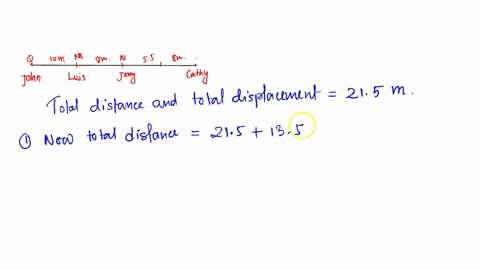 10m M 8m. N 5.5 8m.
John Luis Jerry Cathy
Total distance and total displacement = 21.5 m.
① Now total distance = 21.5 + 13.5